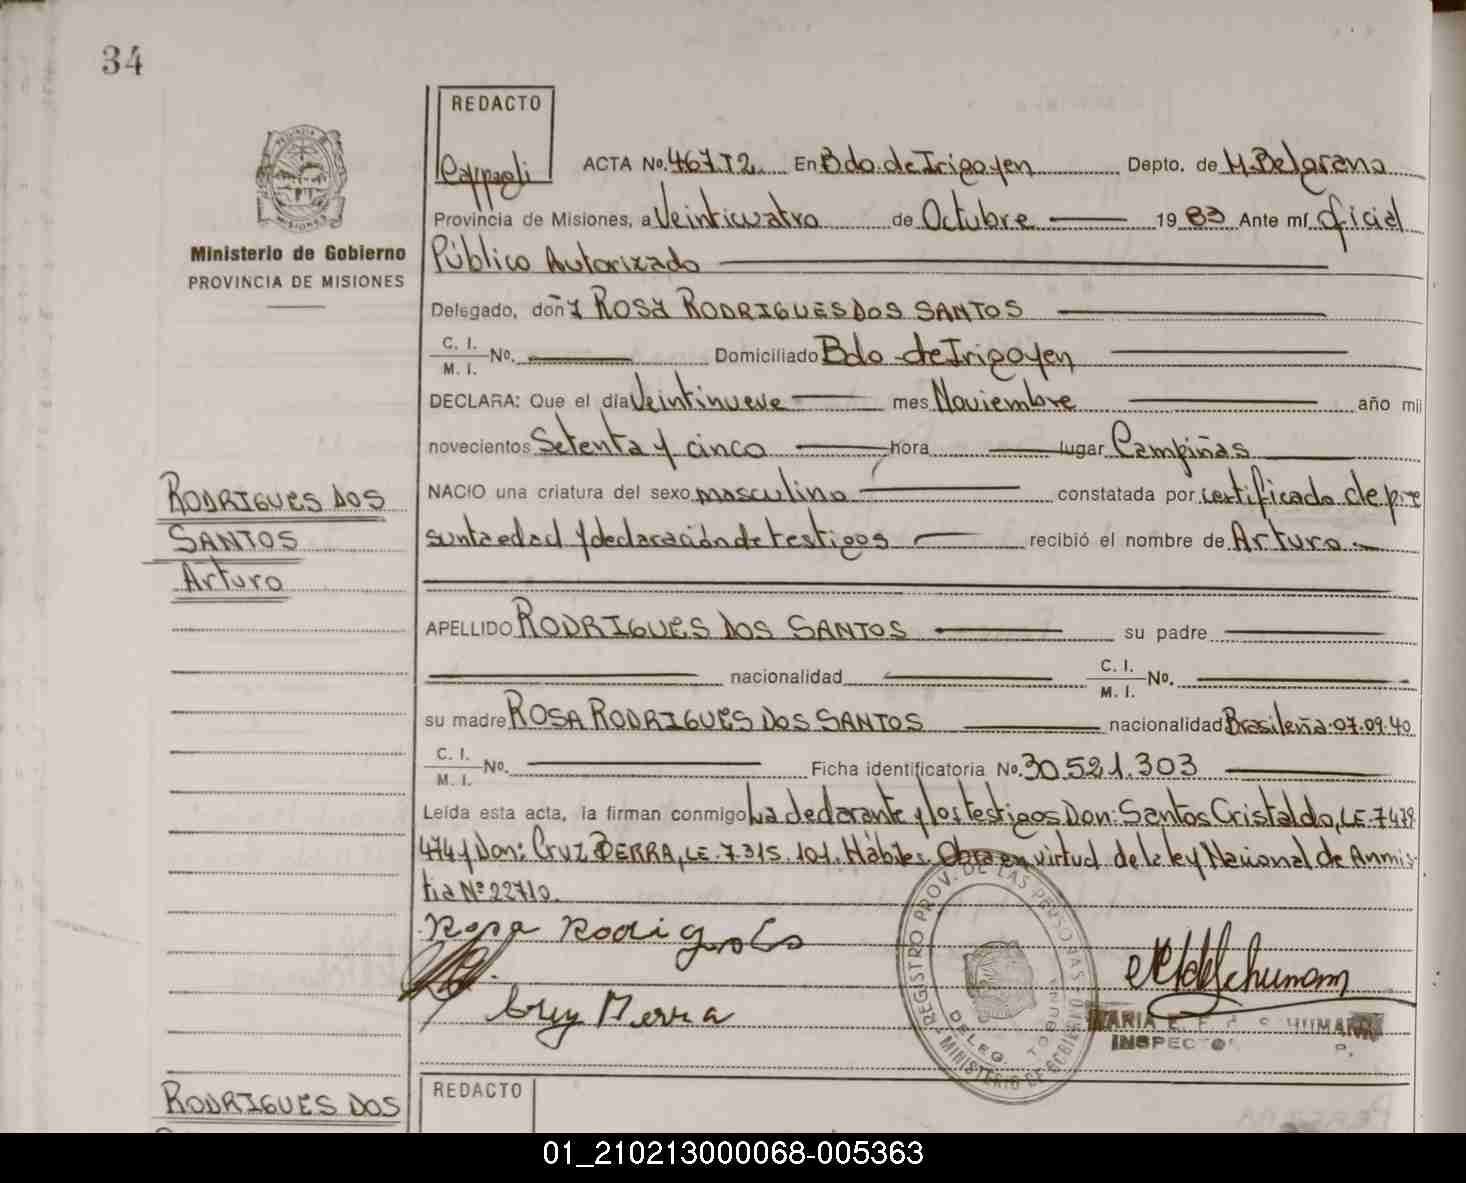 34
REDACTO
Ministerio de Gobierno
PROVINCIA DE MISIONES
ACTA No. 467 T2. En Bdo. de Irigoyen Depto. de M. Belgrano
Provincia de Misiones, a Veinticuatro de Octubre 19 83 Ante mí oficial
Público Autorizado
Delegado, doña Rosa RODRIGUES DOS SANTOS
C. I.
M. I. No. Domiciliado Bdo de Irigoyen
DECLARA: Que el día Veintinueve mes Noviembre año mil
novecientos Setenta y cinco hora lugar Campiñas
NACIO una criatura del sexo masculino constatada por certificado de pre
sunta edad y declaración de testigos recibió el nombre de Arturo
RODRIGUES DOS
SANTOS
Arturo
APELLIDO RODRIGUES DOS SANTOS su padre
nacionalidad C. I.
M. I. No.
su madre ROSA RODRIGUES DOS SANTOS nacionalidad Brasileña 07.09.40
C. I.
M. I. No. Ficha identificatoria No. 30.521.303
Leída esta acta, la firman conmigo La declarante y los testigos Don: Santos Cristaldo, LE. 7.479
474 y Don: Cruz BERRA, LE. 7.315.101. Hábiles. Obra en virtud de la ley Nacional de Anmis-
tia Nº 22710.
Rosa Rodigues
REGISTRO PROV. DE LAS PERSONAS
DELEG.
MINISTERIO DE GOBIERNO
MARIA E. SCHUMANN
INSPECTOR
RODRIGUES DOS
REDACTO
01_210213000068-005363